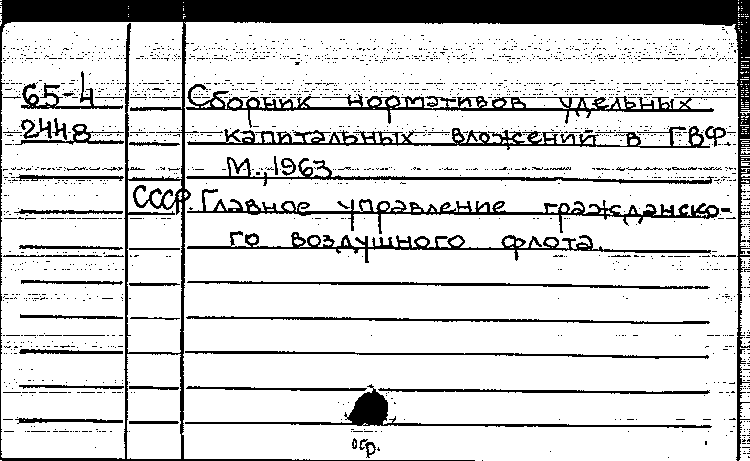 65-4 Сборник нормативов удельных
2448 капитальных вложений в ГВФ.
М., 1963
СССР. Главное управление гражданско-
го воздушного флота.